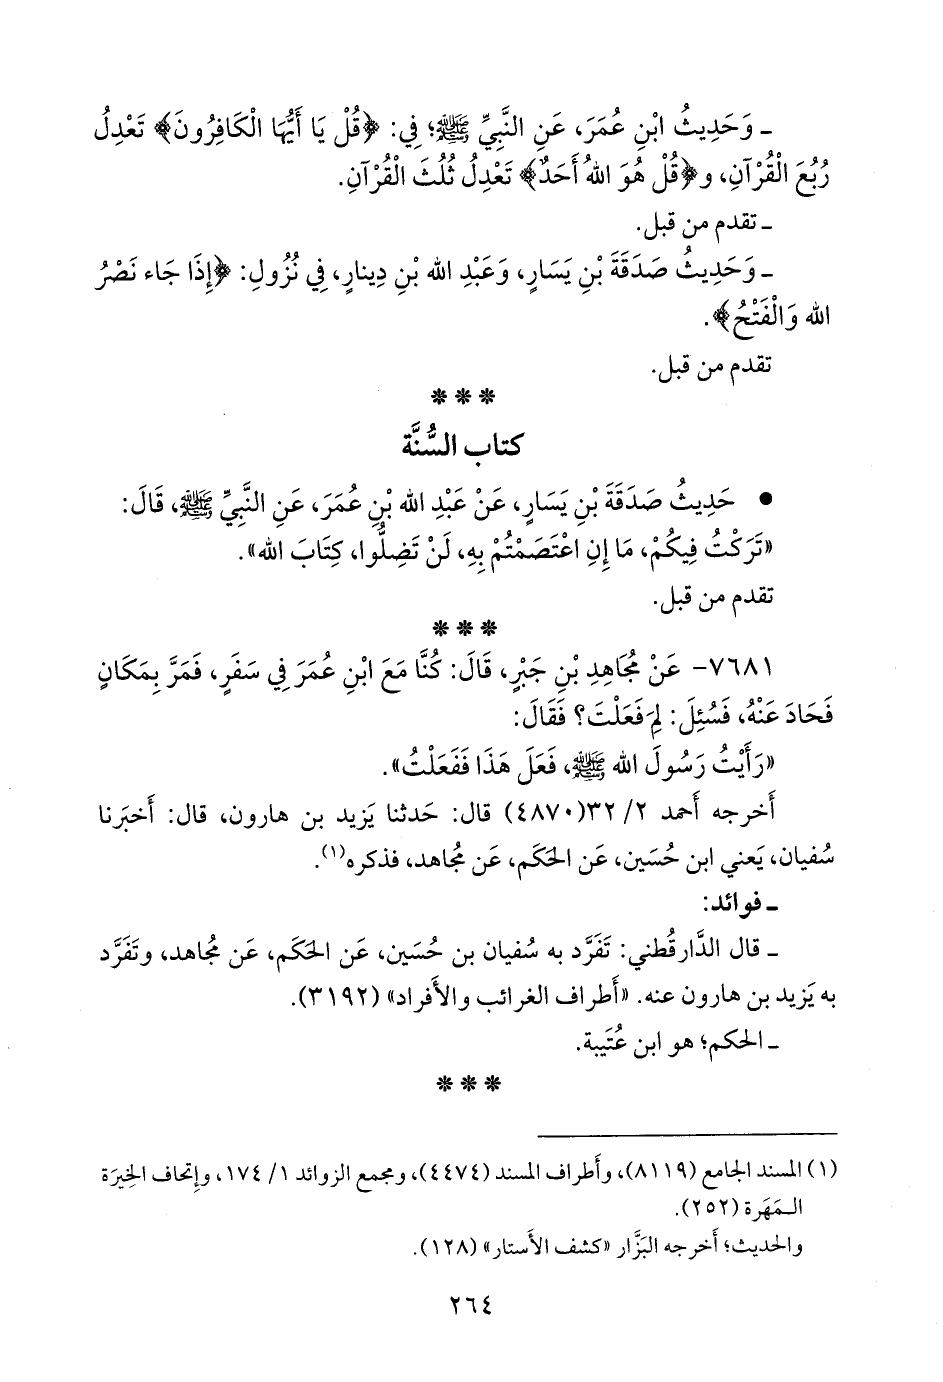 ـ وَحَدِيثُ ابْنِ عُمَرَ، عَنِ النَّبِيِّ ﷺ؛ فِي: ﴿قُلْ يَا أَيُّهَا الْكَافِرُونَ﴾ تَعْدِلُ
رُبُعَ الْقُرْآنِ، و﴿قُلْ هُوَ اللهُ أَحَدٌ﴾ تَعْدِلُ ثُلُثَ الْقُرْآنِ.
ـ تقدم من قبل.
ـ وَحَدِيثُ صَدَقَةَ بْنِ يَسَارٍ، وَعَبْدِ الله بْنِ دِينارٍ، فِي نُزُولِ: ﴿إِذَا جَاء نَصْرُ
الله وَالْفَتْحُ﴾.
تقدم من قبل.
***
كتاب السُّنَّة
• حَدِيثُ صَدَقَةَ بْنِ يَسَارٍ، عَنْ عَبْدِ الله بْنِ عُمَرَ، عَنِ النَّبِيِّ ﷺ، قَالَ:
«تَرَكْتُ فِيكُمْ، مَا إِنِ اعْتَصَمْتُمْ بِهِ، لَنْ تَضِلُّوا، كِتَابَ الله».
تقدم من قبل.
***
٧٦٨١- عَنْ مُجَاهِدِ بْنِ جَبْرٍ، قَالَ: كُنَّا مَعَ ابْنِ عُمَرَ فِي سَفَرٍ، فَمَرَّ بِمَكَانٍ
فَحَادَ عَنْهُ، فَسُئِلَ: لِمَ فَعَلْتَ؟ فَقَالَ:
«رَأَيْتُ رَسُولَ الله ﷺ، فَعَلَ هَذَا فَفَعَلْتُ».
أَخرجه أَحمد ٢/ ٣٢(٤٨٧٠) قال: حَدثنا يَزيد بن هارون، قال: أَخبَرنا
سُفيان، يَعني ابن حُسَين، عَن الحَكَم، عَن مُجاهد، فذكره(١).
ـ فوائد:
ـ قال الدَّارقُطني: تَفَرَّد به سُفيان بن حُسَين، عَن الحَكَم، عَن مُجاهد، وتَفَرَّد
به يَزيد بن هارون عنه. «أَطراف الغرائب والأَفراد» (٣١٩٢).
ـ الحكم؛ هو ابن عُتَيبة.
***
(١) المسند الجامع (٨١١٩)، وأَطراف المسند (٤٤٧٤)، ومجمع الزوائد ١/ ١٧٤، وإِتحاف الخِيرَة
المَهَرة (٢٥٢).
والحديث؛ أَخرجه البَزَّار «كشف الأَستار» (١٢٨).
٢٦٤